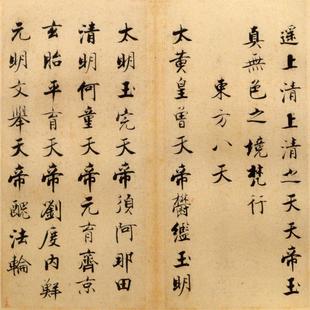 遥上清上清之天天帝玉
真無色之境梵行
東方八天
大黃皇曾天帝欝鑑玉明
太明玉完天帝須阿那田
清明何童天帝元育齊京
玄胎平育天帝劉度内鮮
元明文舉天帝醜法輪